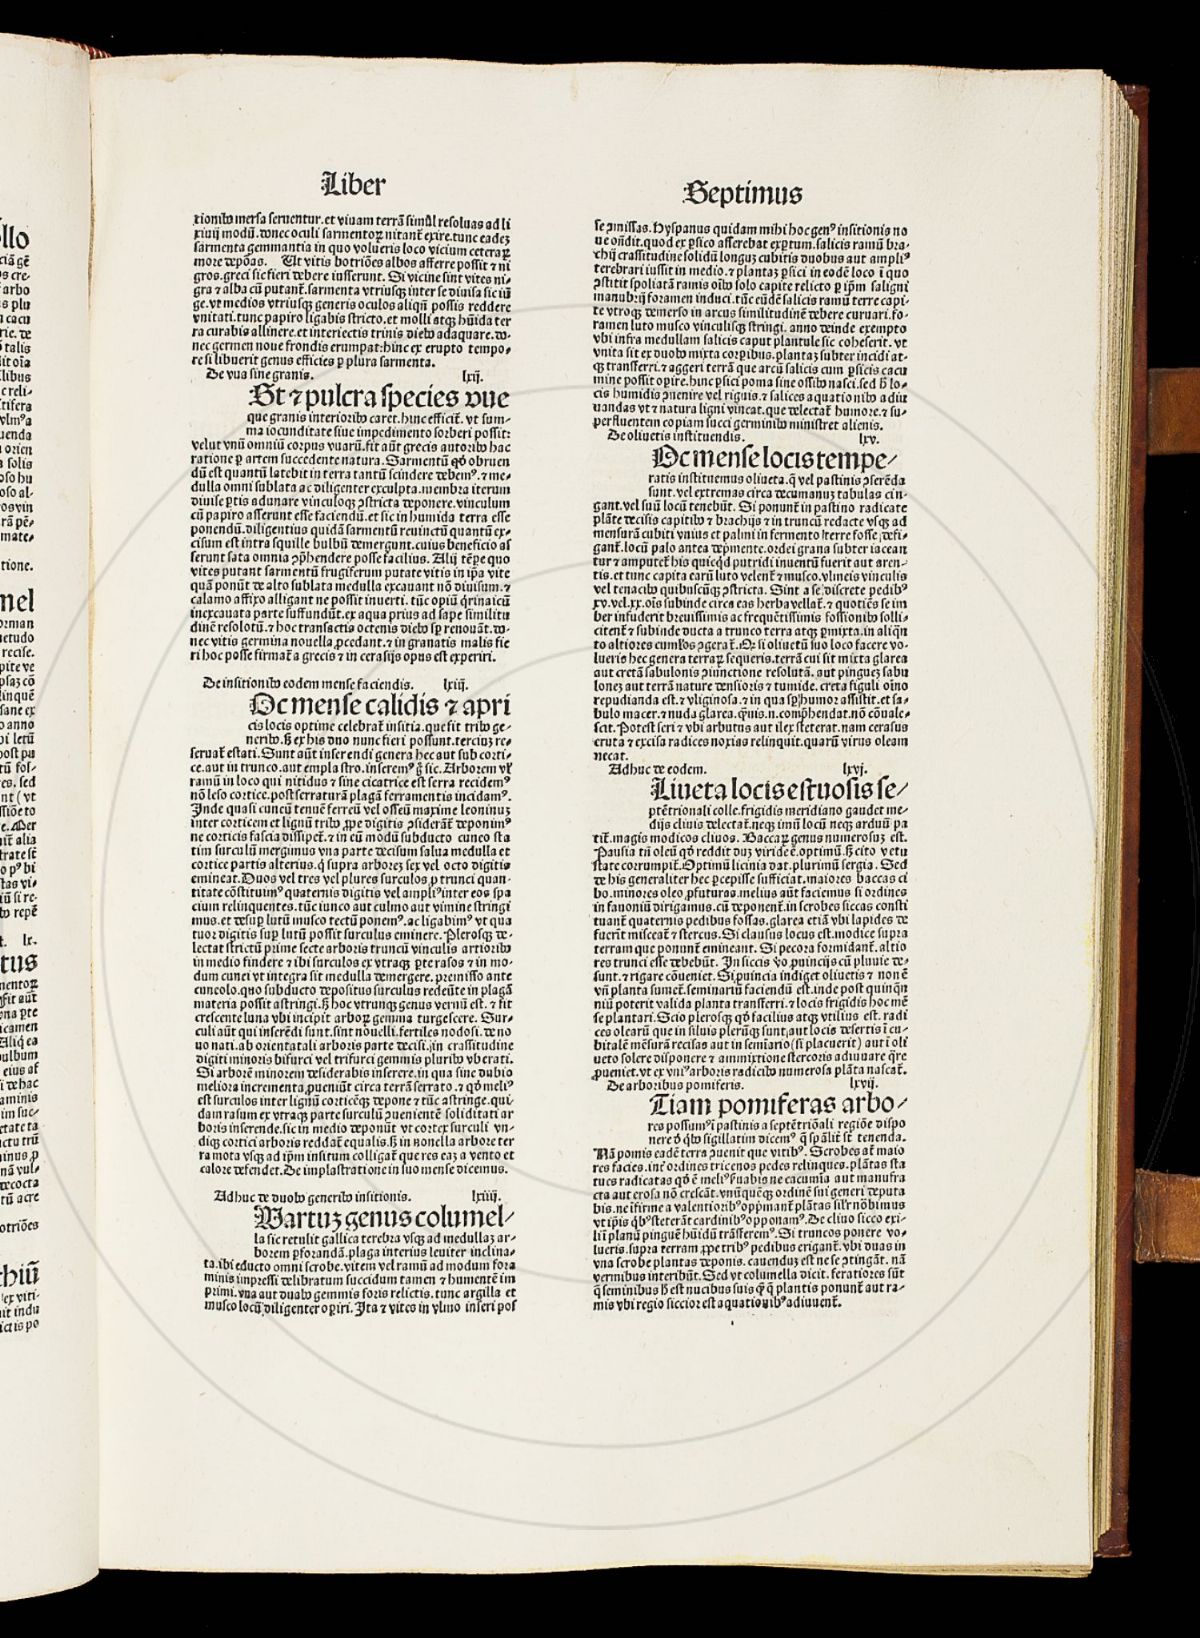 Liber
Septimus
tionibꝯ mersa seruentur. et viuam terrã simul resoluas ad li
xiuij modũ. donec oculi sarmentoꝝ nitant᷑ exire. tunc eadeꝫ
sarmenta gemmantia in quo volueris loco vicium ceteraꝝ
more depõas. Ut vitis botriões albos afferre possit ⁊ ni
gros. greci sic fieri debere iusserunt. Si vicine sint vites ni-
gre ⁊ alba cũ putant᷑. sarmenta vtriusqꝫ inter se diuisa sic iũ
ge. vt medios vtriusqꝫ generis oculos aliqñ possis reddere
vnitati. tunc papiro ligabis stricto. et molli atqꝫ hũida ter
ra curabis allinere. et interiectis trinis diebꝯ adaquare. do-
nec germen noue frondis erumpat: hinc ex erupto tempo-
re si libuerit genus efficies ꝑ plura sarmenta.
De vua sine granis. lxij.
St ⁊ pulcra species vue
que granis interioribꝯ caret. hinc efficit᷑. vt sum-
ma iocunditate siue impedimento sorberi possit:
velut vnũ omniũ corpus vuarũ. fit aũt grecis autoribꝯ hac
ratione ꝑ artem succedente natura. Sarmentũ qđ obruen
dũ est quantũ latebit in terra tantũ scindere debemꝰ. ⁊ me-
dulla omni sublata ac diligenter exculpta. membra iterum
diuise ꝑtis adunare vinculoqꝫ ꝯstricta deponere. vinculum
cũ papiro asserunt esse faciendũ. et sic in humida terra esse
ponendũ. diligentius quidã sarmentũ reuinctũ quantũ ex-
cisum est intra squille bulbũ demergunt. cuius beneficio as
serunt sata omnia ꝯp̃hendere posse facilius. Alij tẽpe quo
vites putant sarmentũ frugiferum putate vitis in ip̃a vite
quã ponũt de alto sublata medulla excauant nõ diuisum. ⁊
calamo affixo alligant ne possit inuerti. tũc opiũ q̃rinaicũ
inexcauata parte suffundũt. ex aqua prius ad sape similitu
dinẽ resolotũ. ⁊ hoc transactis octenis diebꝯ sꝑ renouãt. do-
nec vitis germina nouella ꝓcedant. ⁊ in granatis malis fie
ri hoc posse firmat᷑ a grecis ⁊ in cerasijs opus est experiri.
De insitionibꝯ eodem mense faciendis. lxiij.
Oc mense calidis ⁊ apri
cis locis optime celebrat᷑ insitia. que fit tribꝯ ge-
neribꝯ. sꝫ ex his duo nunc fieri possunt. terciuꝫ re-
seruat᷑ estati. Sunt aũt inserendi genera hec aut sub corti-
ce. aut in trunco. aut emplastro. inseremꝰ g̊ sic. Arborem vl᷑
ramũ in loco qui nitidus ⁊ sine cicatrice est serra recidemꝰ
nõ leso cortice. post serraturã plagã ferramentis incidamꝰ.
Inde quasi cuneũ tenuẽ ferreũ vel osseũ maxime leoninuꝫ
inter corticem et lignũ tribꝯ ꝓpe digitis ꝯsiderãt᷑ deponimꝰ
ne corticis fascia dissipet᷑. ⁊ in eũ modũ subducto cuneo sta
tim surculũ mergimus vna parte decisum salua medulla et
cortice partis alterius. q̊ supra arboreꝫ sex vel octo digitis
emineat. Duos vel tres vel plures surculos ꝓ trunci quan-
titate cõstituimꝰ quaternis digitis vel ampliꝰ inter eos spa
cium relinquentes. tũc iunco aut culmo aut vimine stringi
mus. et desuꝑ lutũ musco tectũ ponemꝰ. ac ligabimꝰ vt qua
tuor digitis suꝑ lutũ possit surculus eminere. Plerosqꝫ de-
lectat strictũ prime secte arboris truncũ vinculis artioribꝯ
in medio findere ⁊ ibi surculos ex vtraqꝫ ꝑte rasos ⁊ in mo-
dum cunei vt integra sit medulla demergere. premisso ante
cuneolo. quo subducto depositus surculus redeũte in plagã
materia possit astringi. sꝫ hoc vtrunqꝫ genus vernũ est. ⁊ fit
crescente luna vbi incipit arboꝝ gemma turgescere. Sur-
culi aũt qui inserẽdi sunt. sint nouelli. fertiles nodosi. de no
uo nati. ab orientali arboris parte decisi. in crassitudine
digiti minoris bifurci vel trifurci gemmis pluribꝯ vberati.
Si arborẽ minorem desiderabis inserere. in qua sine dubio
meliora incrementa ꝓueniũt circa terrã serrato. ⁊ qđ meliꝰ
est surculos inter lignũ corticẽqꝫ depone ⁊ tũc astringe. qui
dam rasum ex vtraqꝫ parte surculũ ꝯuenientẽ soliditati ar
boris inserende. sic in medio deponũt vt cortex surculi vn-
diqꝫ cortici arboris reddat᷑ equalis. sꝫ in nouella arbore ter
ra mota vsqꝫ ad ip̃m insitum colligat᷑ que res eaꝫ a vento et
calore defendet. De implastratione in suo mense dicemus.
Adhuc de duobꝯ generibꝯ insitionis. lxiiij.
Martuꝫ genus columel-
la sic retulit gallica terebra vsqꝫ ad medullaꝫ ar-
borem ꝑforandã. plaga interius leuiter inclina-
ta. ibi educto omni scrobe. vitem vel ramũ ad modum fora
minis impressi delibratum succidum tamen ⁊ humentẽ im
primi. vna aut duabꝯ gemmis foris relictis. tunc argilla et
musco locũ diligenter oꝑiri. Ita ⁊ vites in vlmo inseri pos
se ꝓmissas. Hyspanus quidam mihi hoc genꝰ insitionis no
ue oñdit. quod ex ꝑsico asserebat exꝑtum. salicis ramũ bra-
chij crassitudine solidũ longuꝫ cubitis duobus aut ampliꝰ
terebrari iussit in medio. ⁊ plantaꝫ ꝑsici in eodẽ loco ĩ quo
ꝯstitit spoliatã ramis oĩbꝯ solo capite relicto ꝑ ip̃m saligni
manubrij foramen induci. tũc eũdẽ salicis ramũ terre capi-
te vtroqꝫ demerso in arcus similitudinẽ debere curuari. fo-
ramen luto musco vinculisqꝫ stringi. anno deinde exempto
vbi infra medullam salicis caput plantule sic coheserit. vt
vnita sit ex duobꝯ mixta corꝑibus. plantaꝫ subter incidi at-
qꝫ transferri. ⁊ aggeri terrã que arcũ salicis cum ꝑsicis cacu
mine possit oꝑire. hinc ꝑsici poma sine ossibꝯ nasci. sed hꝫ lo-
cis humidis ꝯuenire vel riguis. ⁊ salices aquationibꝯ adiu
uandas vt ⁊ natura ligni vincat. que delectat᷑ humore. ⁊ su-
perfluentem copiam succi germinibꝯ ministret alienis.
De oliuetis instituendis. lxv.
Oc mense locis tempe-
ratis instituemus oliueta. q̃ vel pastinis ꝯserẽda
sunt. vel extremas circa decumanuꝫ tabulas cin-
gant. vel suũ locũ tenebũt. Si ponunt᷑ in pastino radicate
plãte decisis capitibꝯ ⁊ brachijs ⁊ in truncũ redacte vsqꝫ ad
mensurã cubiti vnius et palmi in fermento terre fosse defi-
gant᷑. locũ palo antea dep̃mente. ordei grana subter iacean
tur ⁊ amputet᷑ his quicq̃d putridi inuentũ fuerit aut aren-
tis. et tunc capita earũ luto velent᷑ ⁊ musco. vlmeis vinculis
vel tenacibꝯ quibuscũqꝫ ꝯstricta. Sint a se discrete pedibꝰ
xv. vel. xx. oĩs subinde circa eas herba vellat᷑. ⁊ quotiẽs se im
ber infuderit breuissimis ac frequẽtissimis fossionibꝯ solli-
citent᷑ ⁊ subinde ducta a trunco terra atqꝫ ꝑmixta. in aliqñ
to altiores cumlꝯs ꝯgerat᷑. Qꝫ si oliuetũ suo loco facere vo-
lueris hec genera terraꝝ sequeris. terrã cui sit mixta glarea
aut cretã sabulonis ꝯiunctione resolutã. aut pingueꝫ sabu
loneꝫ aut terrã nature densioris ⁊ tumide. creta figuli oĩno
repudianda est. ⁊ vliginosa. ⁊ in qua sꝑ humor assistit. et sa-
bulo macer. ⁊ nuda glarea. q̃uis. n. comp̃hendat. nõ cõuale-
scit. Potest seri ⁊ vbi arbutus aut ilex steterat. nam cerasus
eruta ⁊ excisa radices noxias relinquit. quarũ virus oleam
necat.
Adhuc de eodem. lxvj.
Liueta locis estuosis se-
ptẽtrionali colle. frigidis meridiano gaudet me-
dijs cliuis delectat᷑. neqꝫ imũ locũ neqꝫ arduũ pa
tit᷑. magis modicos cliuos. Baccaꝝ genus numerosuꝫ est.
Pausia tñ oleũ qđ reddit duꝫ viride ẽ. optimũ. sꝫ cito vetu
state corrumpit᷑. Optimũ licinia dat. plurimũ sergia. Sed
de his generaliter hec ꝑcepisse sufficiat. maiores baccas ci
bo. minores oleo ꝓfuturas. melius aũt faciemus si ordines
in fauoniũ dirigamus. cũ deponent᷑. in scrobes siccas consti
tuant᷑ quaternis pedibus fossas. glarea etiã vbi lapides de
fuerĩt misceat᷑ ⁊ stercus. Si clausus locus est. modice supra
terram que ponunt᷑ emineant. Si pecora formidant᷑. altio
res trunci esse debebũt. In siccis vo ꝓuincijs cũ pluuie de-
sunt. ⁊ rigare cõueniet. Si ꝓuincia indiget oliuetis ⁊ non ẽ
vñ planta sumet᷑. seminariũ faciendũ est. inde post quinqñ
niũ poterit valida planta transferri. ⁊ locis frigidis hoc mẽ
se plantari. Scio plerosqꝫ qđ facilius atqꝫ vtilius est. radi
ces olearũ que in siluis plerũqꝫ sunt aut locis desertis ĩ cu-
bitalẽ mẽsurã recisas aut in semiario (si placuerit) aut᷑ oli
ueto solere disponere ⁊ ammixtione stercoris adiuuare q̃re
ꝓueniet. vt ex vniꝰ arboris radicibꝯ numerosa plãta nascat᷑.
De arboribus pomiferis. lxvij.
Tiam pomiferas arbo-
res possumꝰ pastinis a septẽtriõali regiõe dispo
nere đ qbꝯ sigillatim dicemꝰ q̃ sp̃alit᷑ st̃ tenenda.
Nã pomis eadẽ terra ꝯuenit que vitibꝰ. Scrobes at᷑ maio
res facies. int᷑ ordines tricenos pedes relinques. plãtas sta
tues radicatas qđ ẽ meliꝰ ẞuabis ne cacumĩa aut manufra
cta aut erosa nõ crescãt. vnũquẽqꝫ ordinẽ sui generi deputa
bis. ne ĩfirme a valentioribꝰ opp̃mant᷑ plãtas silr nõbimus
vt ip̃is qbꝰ steterãt cardinibꝰ opponamꝰ. De cliuo sicco exi-
li ĩ planũ pinguẽ hũidũ trãsferemꝰ. Si truncos ponere vo-
lueris. supra terram ꝓpe tribꝰ pedibus erigant᷑. vbi duas in
vna scrobe plantas deponis. cauenduꝫ est ne se ꝯtingãt. nã
vermibus interibũt. Sed vt columella dicit. feratiores sũt
q̃ seminibus sꝫ est nucibus suis q̃ q̃ plantis ponunt᷑ aut ra-
mis vbi regio siccior est aquationibꝰ adiuuent᷑.